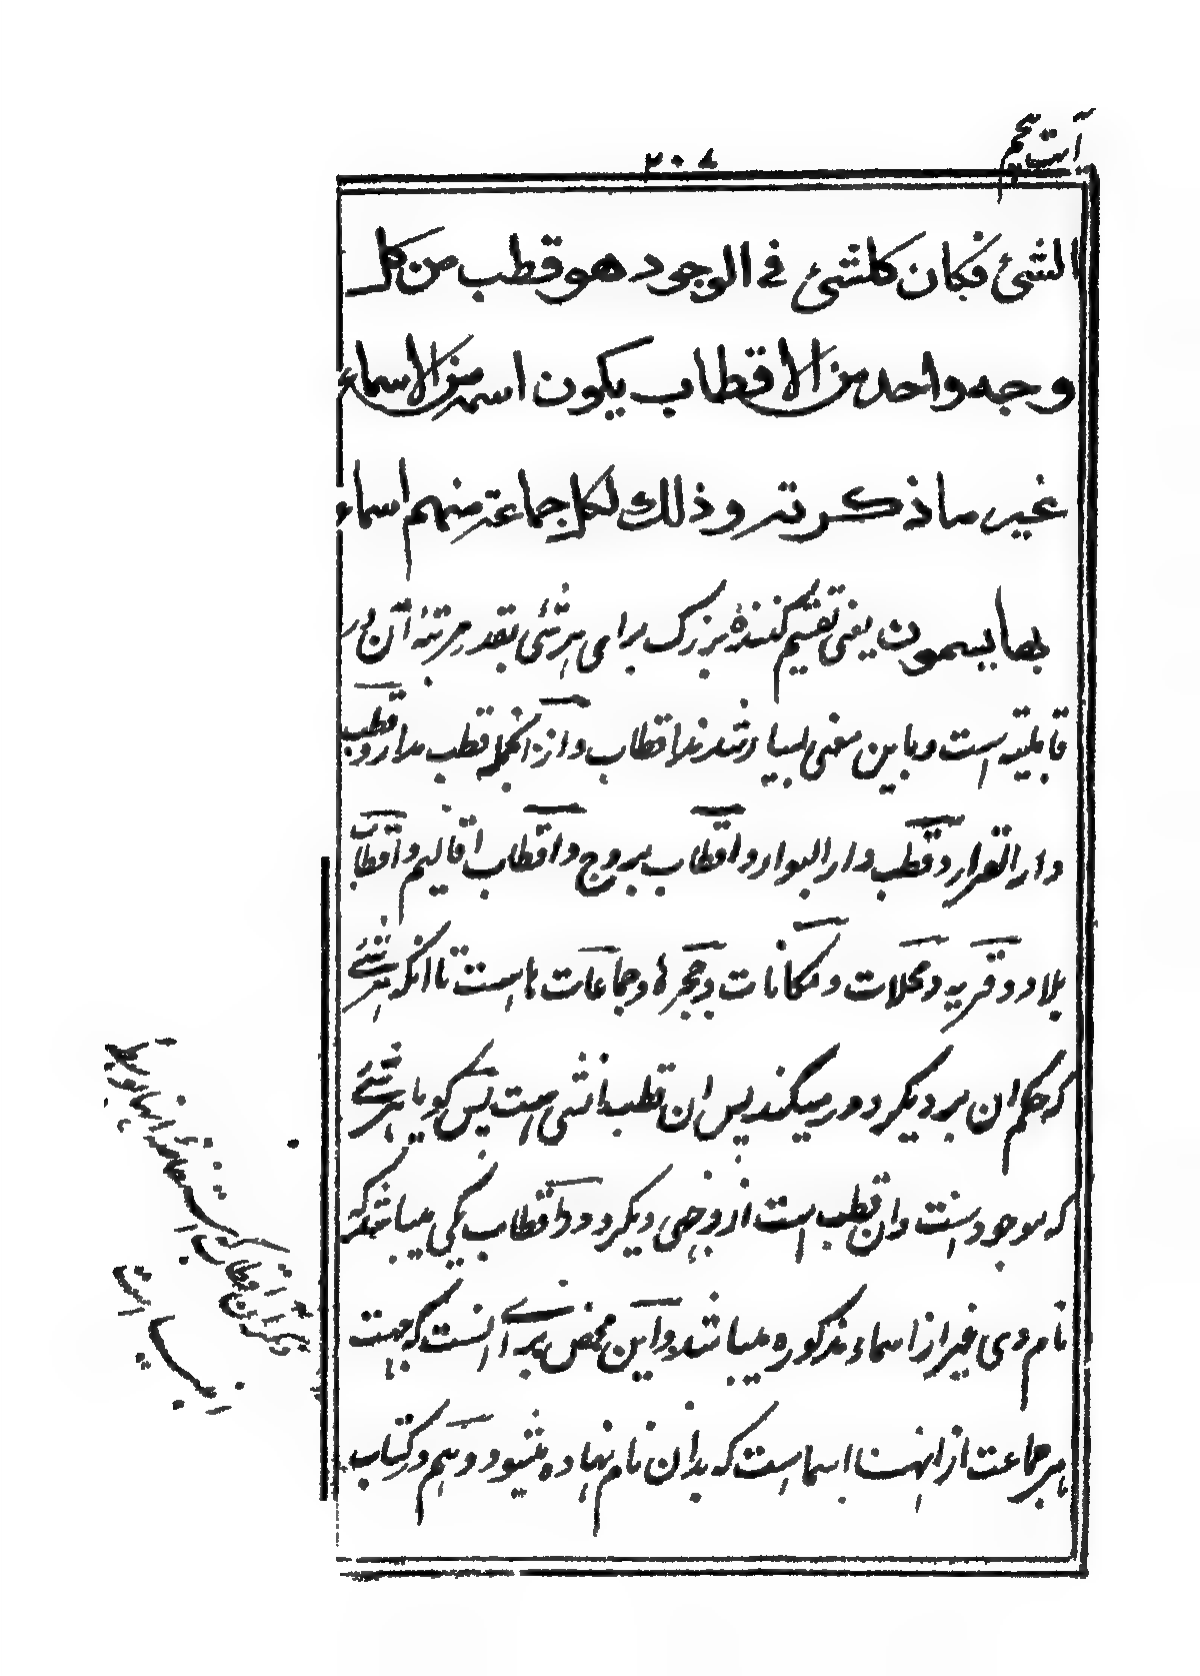 آیت پنجم
٢٠٨
الشئ فکان کلشئ فی الوجود هو قطب من کل
وجه واحد من الاقطاب یکون اسمه من الاسماء
غیر ما ذکرته و ذلک لکل جماعة منهم اسماء
بها یسمون یعنی تقسیم کنندهٔ بزرگ برای هر شئی بقدر مرتبهٔ آن در
قابلیة است و باین معنی بسیار شدند اقطاب و از آنجمله قطب مدار و قطب
دار القرار و قطب دار البوار و اقطاب بروج و اقطاب اقالیم و اقطاب
بلاد و قریه و محلات و مکانات و حجرها و جماعات هاست تا انکه هر شئے
که حکم ان بر دیگر دور میکند پس ان قطب انشی است پس گویا هر شئے
که موجود است وان قطب است از وجهی دیگر و اقطاب یکی میباشد که
نام وی غیر از اسماء مذکوره میباشد و این محض برائے انست که جهت
هر جماعت از انها اسما است که بدان نام نهاده میشود و هم در کتاب